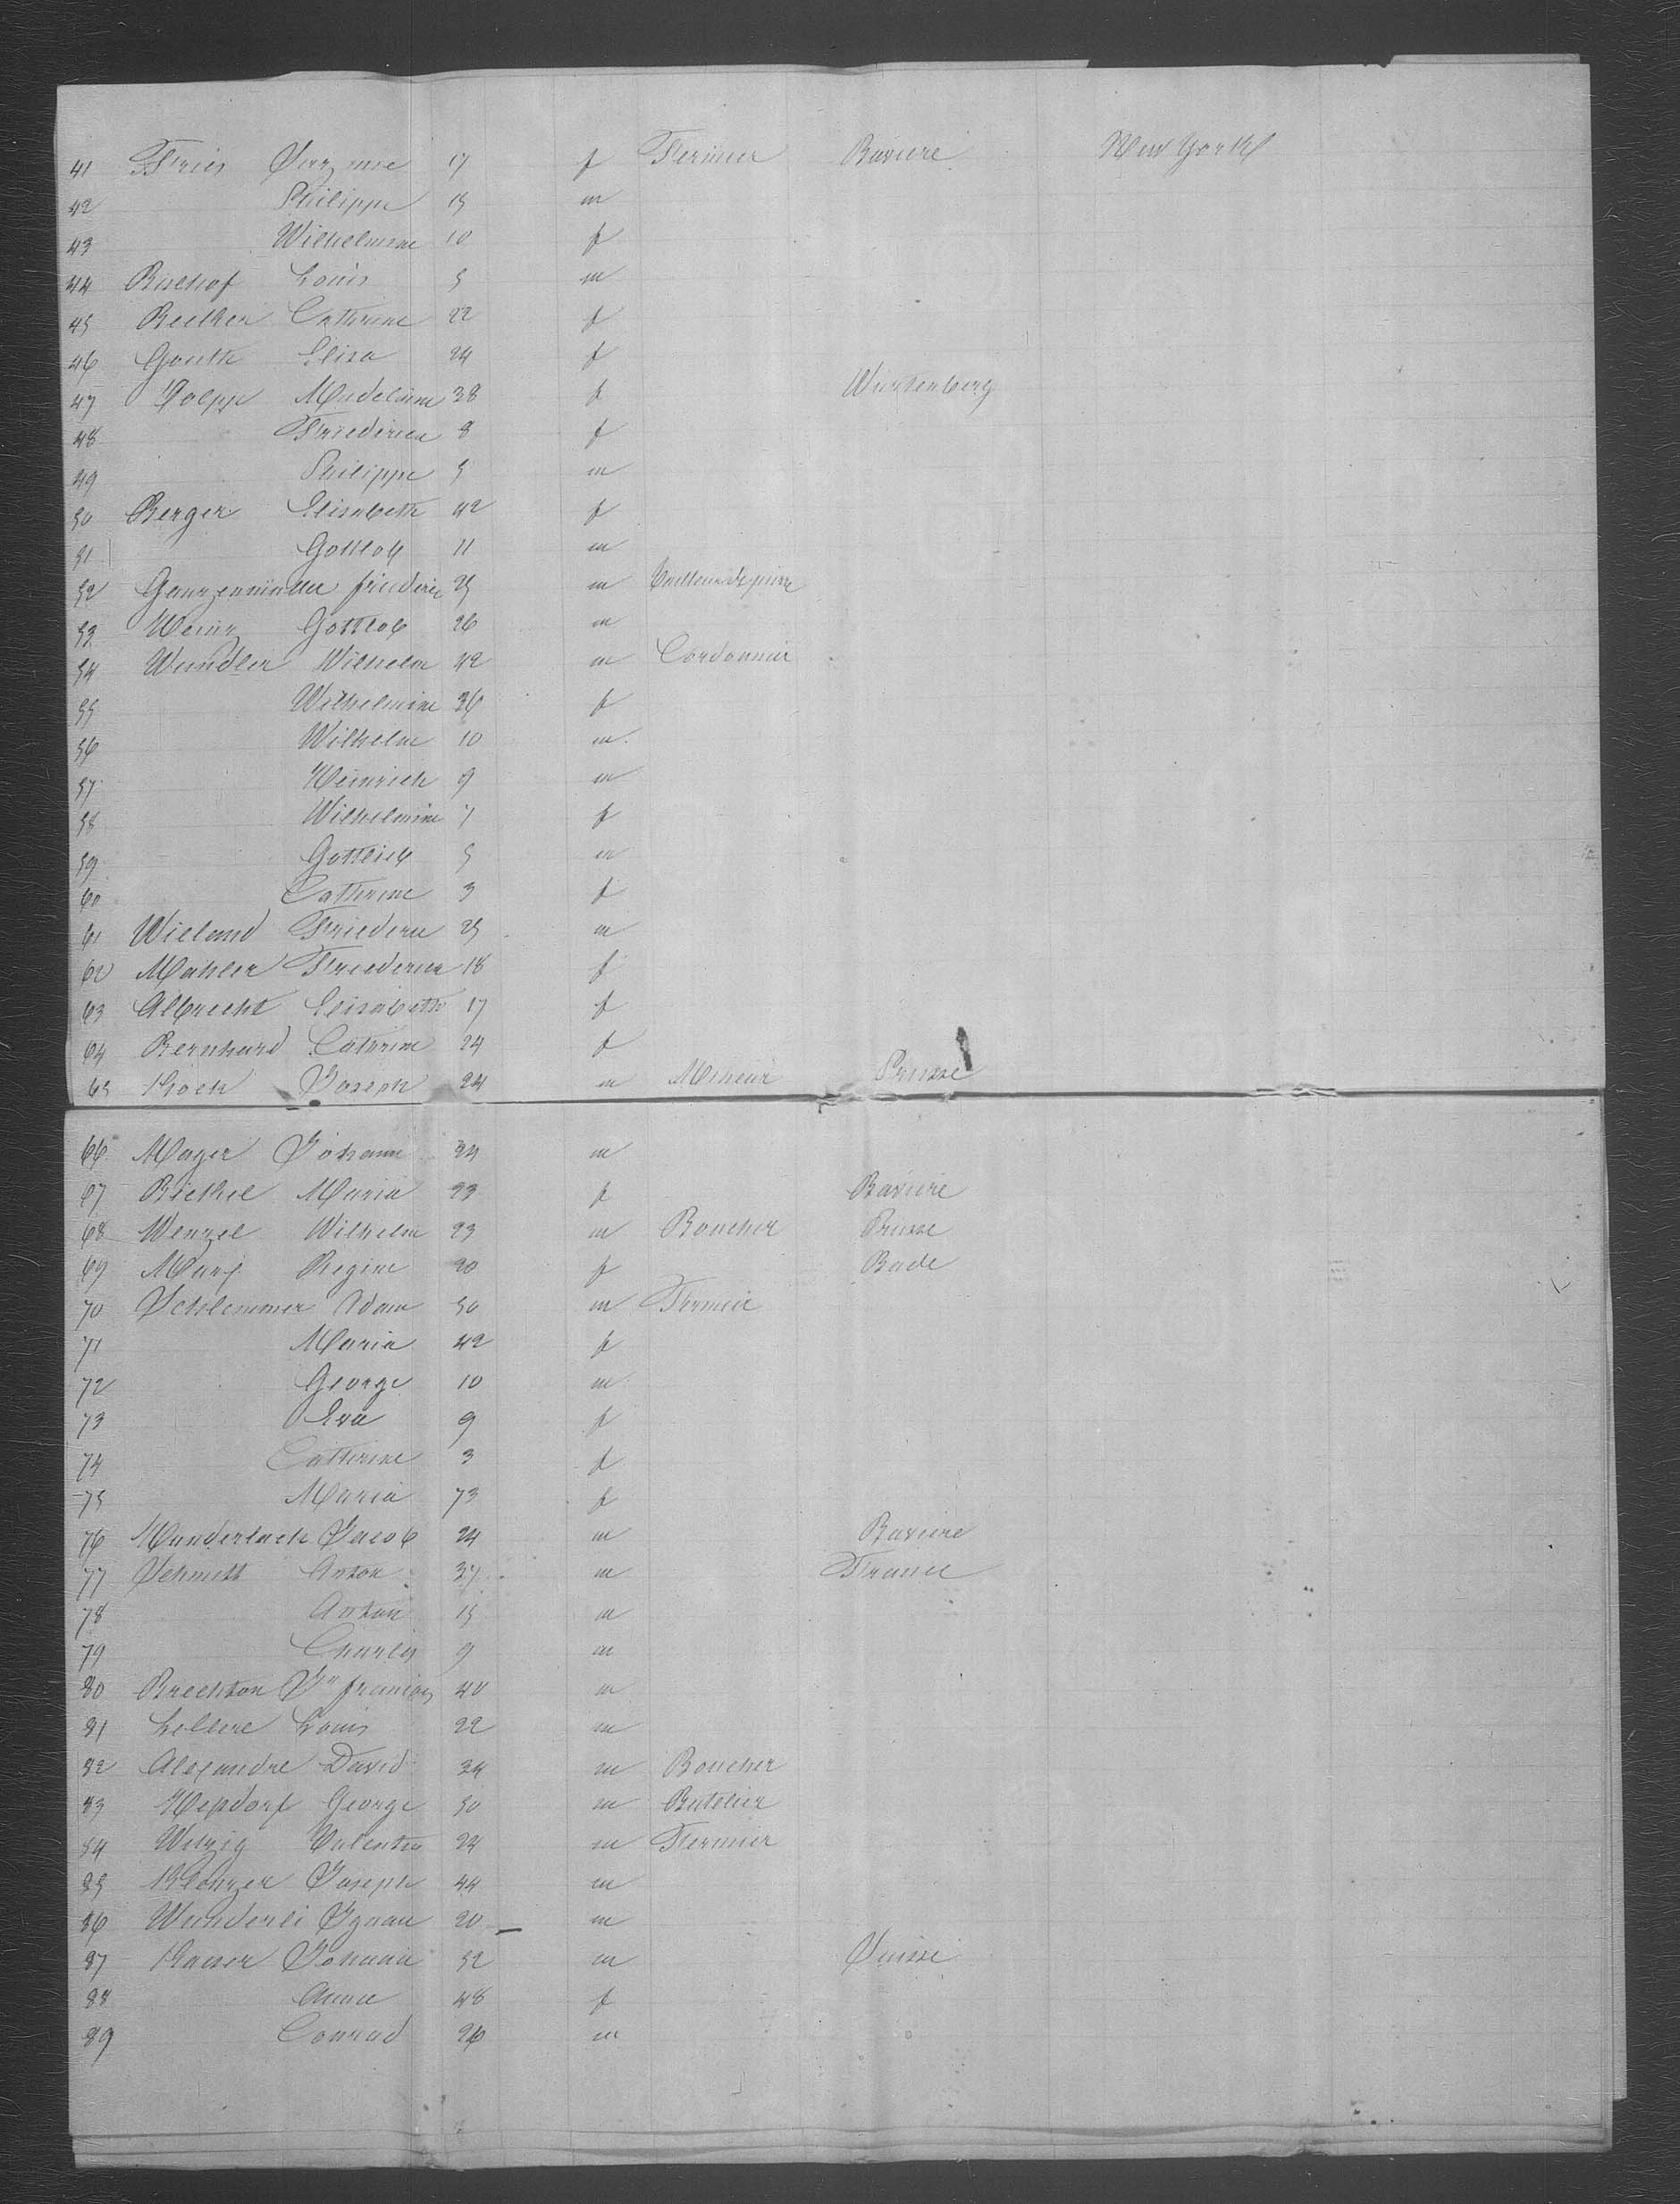 41 Fries Suzanne 17 f Fermier Baviere New York
42 Philippe 15 m
43 Wilhelmine 10 f
44 Bischof Louis 5 m
45 Becker Cathrine 22 f
46 Gouth Elisa 24 f
47 Madeleine 38 f Wurtenberg
48 Friederica 8 f
49 Philippe 5 m
50 Berger Elisabeth 42 f
51 Gottlob 11 m
52 Friederic 25 m Tailleur de pierre
53 Gottlob 26 m
54 Wundler Wilhelm 42 m Cordonnier
55 Wilhelmine 36 f
56 Wilhelm 10 m
57 Heinrich 9 m
58 Wilhelmine 7 f
59 Gottlieb 5 m
60 Cathrine 3 f
61 Wieland Friederic 25 m
62 Mahler Friederica 18 f
63 Albrecht Elisabeth 17 f
64 Bernhard Cathrine 24 f
65 Koch Joseph 24 m Mineur Prusse
66 Mayer Johann 24 m
67 Bickel Maria 23 f Baviere
68 Wenzel Wilhelm 23 m Boucher Prusse
69 Regine 20 f Bade
70 Schlemmer Adam 50 m Fermier
71 Maria 42 f
72 George 10 m
73 Eva 9 f
74 Cathrine 3 f
75 Maria 73 f
76 Manderlach Jacob 24 m Baviere
77 Schmitt Anton 37 m France
78 Anton 15 m
79 Charles 9 m
80 Brechton Jn francois 40 m
81 Louis 22 m
82 Alexandre David 34 m Boucher
83 Hepdorf George 50 m Batelier
84 Witzig Valentin 24 m Fermier
85 Klenzer Joseph 44 m
86 Wunderli 20 m
87 Kaiser Johann 52 m Suisse
88 Anna 48 f
89 Conrad 26 m